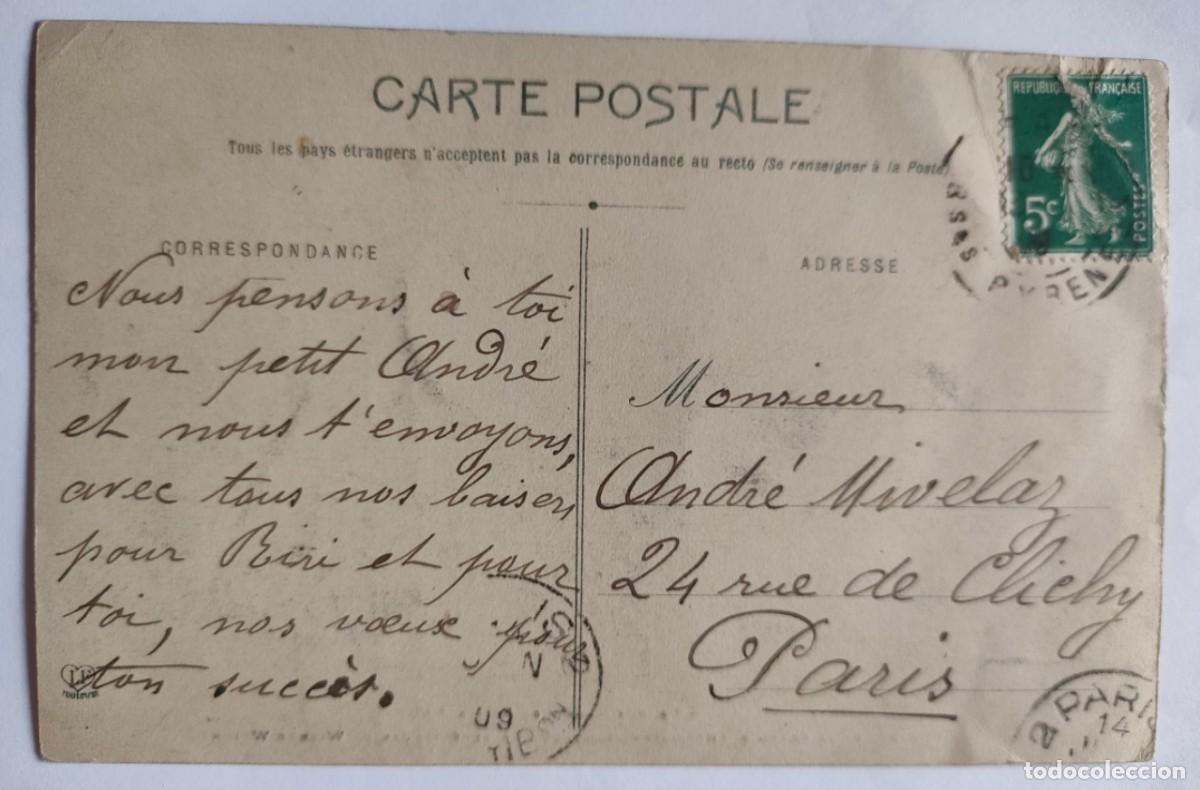 CARTE POSTALE
Tous les pays étrangers n'acceptent pas la correspondance au recto (Se renseigner à la Poste)
REPUBLIQUE FRANÇAISE
5c
POSTES
CORRESPONDANCE
Nous pensons à toi
mon petit André
et nous t'envoyons,
avec tous nos baisers
pour Riri et pour
toi, nos vœux pour
ton succès.
ADRESSE
Monsieur
André Mivelaz
24 rue de Clichy
Paris
09
PARIS
14
todocoleccion